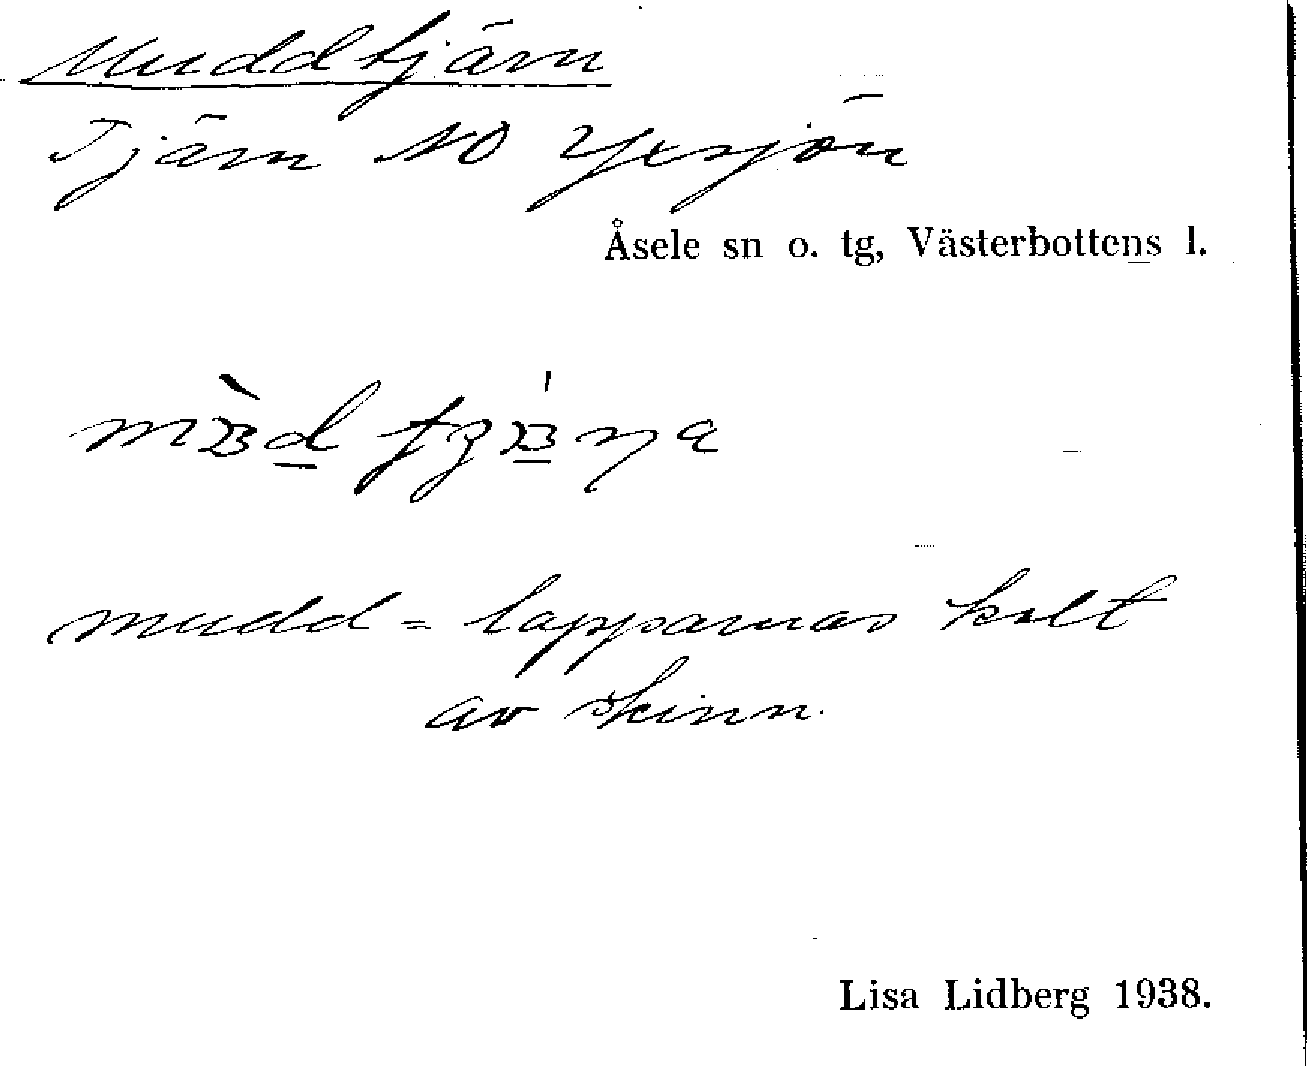 Muddtjärn
Tjärn NO Yxsjön
Åsele sn o. tg, Västerbottens l.
mudd = lapparnas kolt
av skinn.
Lisa Lidberg 1938.